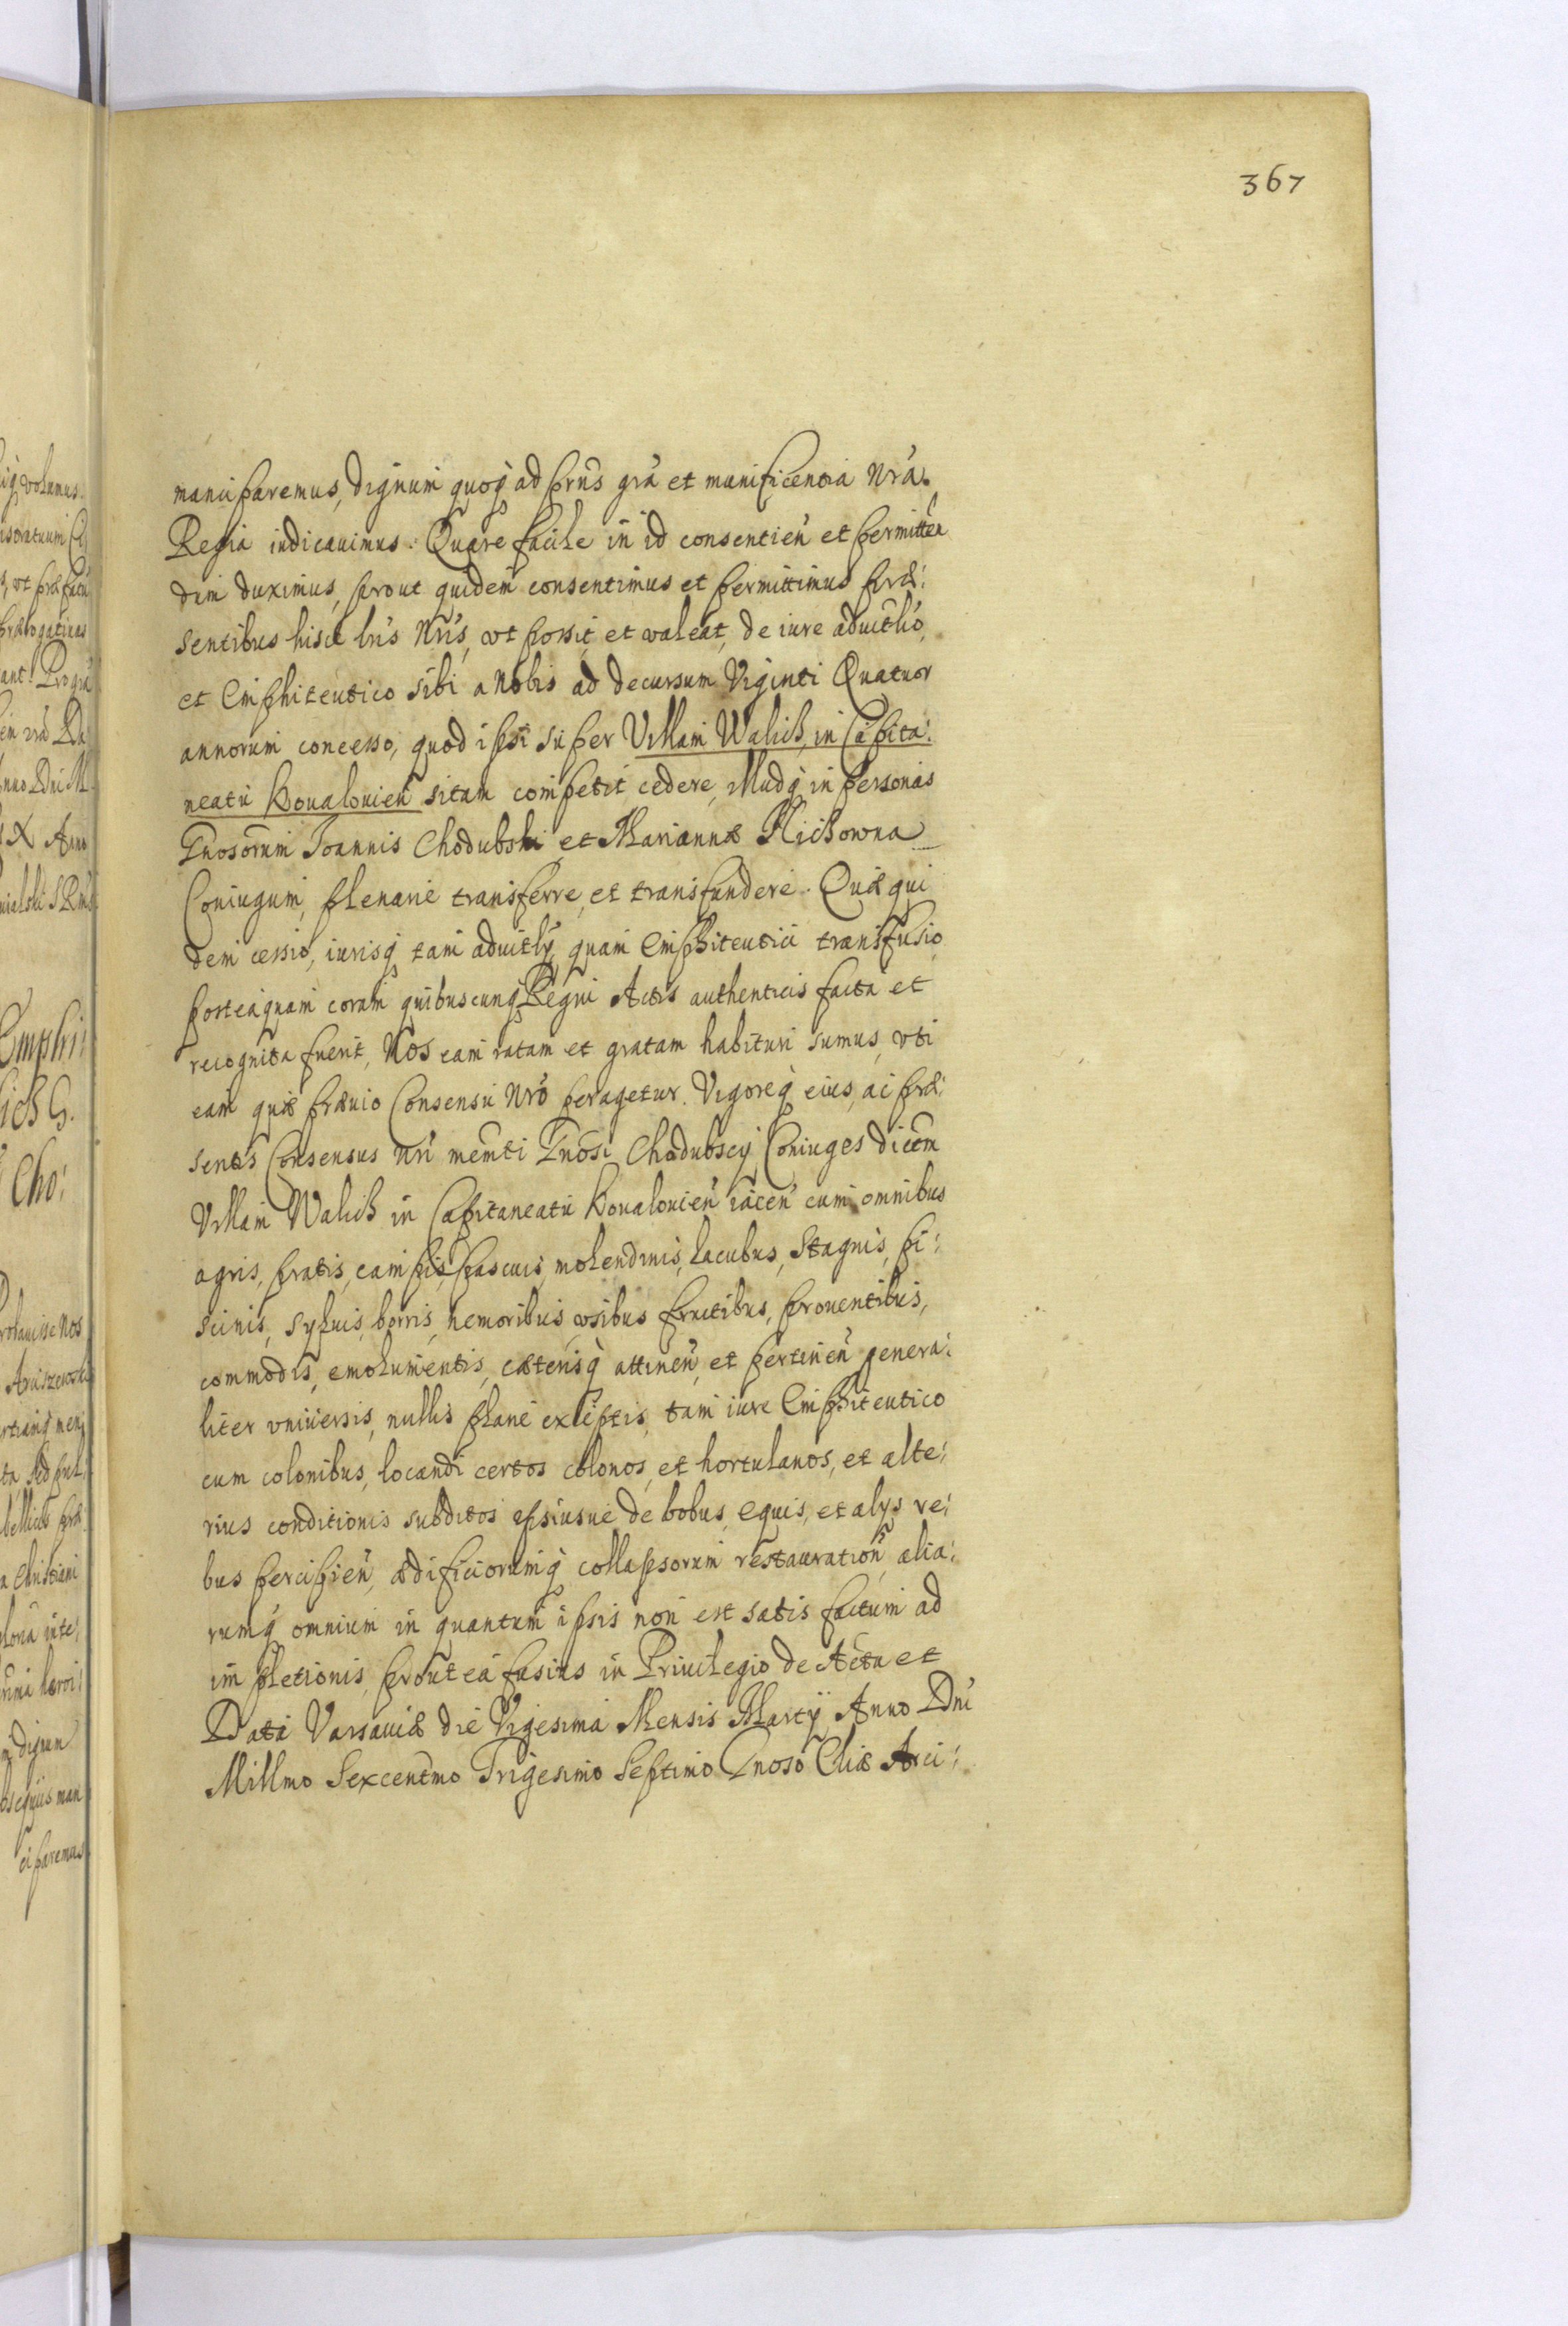 367
manciparemus, dignum quoq ad prns gra et munificentia Nra.
Regia iudicauimus. Quare facile in id consentien et permitten
dum duximus, prout quidem consentimus et permittimus præ:
sentibus hisce lris Nris, vt possit et valeat, de iure aduitlio,
et Emphiteutico sibi a Nobis ad decursum Viginti Quatuor
annorum concesso, quod ipsi super Villam Walich, in Capita:
neatu Kovalovien sitam competit cedere, illudq in personas
Gnosorum Joannis Chodubski et Mariannæ Klichowna
Coniugum, plenarie transferre, et transfundere. Quæ qui
dem cessio, iurisq tam aduitly quam Emphiteutici transfusio
posteaquam coram quibuscunq Regni Actis authenticis facta et
recognita fuerit, Nos eam ratam et gratam habituri sumus, vti
eam quæ prævio Consensu Nro peragetur. Vigoreq eius, ac præ:
sentis Consensus Nri memti Gnosi Chodubscy Coniuges dictm
Villam Walich in Capitaneatu Kovalovien iacen cum omnibus
agris, pratis, campis, pascuis, molendinis, lacubus, stagnis, pi:
scinis, syluis, borris, nemoribus, vsibus fructibus, prouentibus,
commodis, emolumentis, cæterisq attinen, et pertinen genera:
liter vniuersis, nullis plane exceptis, tam iure Emphiteutico
cum colonibus, locandi certos colonos, et hortulanos, et alte:
rius conditionis subditos ipsiusue de bobus, equis, et alys re:
bus percipien, ædificiorumq collapsorum restauration, alia:
rumq omnium in quantum ipsis non est satis factum ad
impletionis, prout ea fusius in Priuilegio de Actu et
Data Varsaviæ die Vigesima Mensis Marty Anno Dni
Millmo Sexcentmo Trigesimo Septimo Gnoso Eliæ Arci: